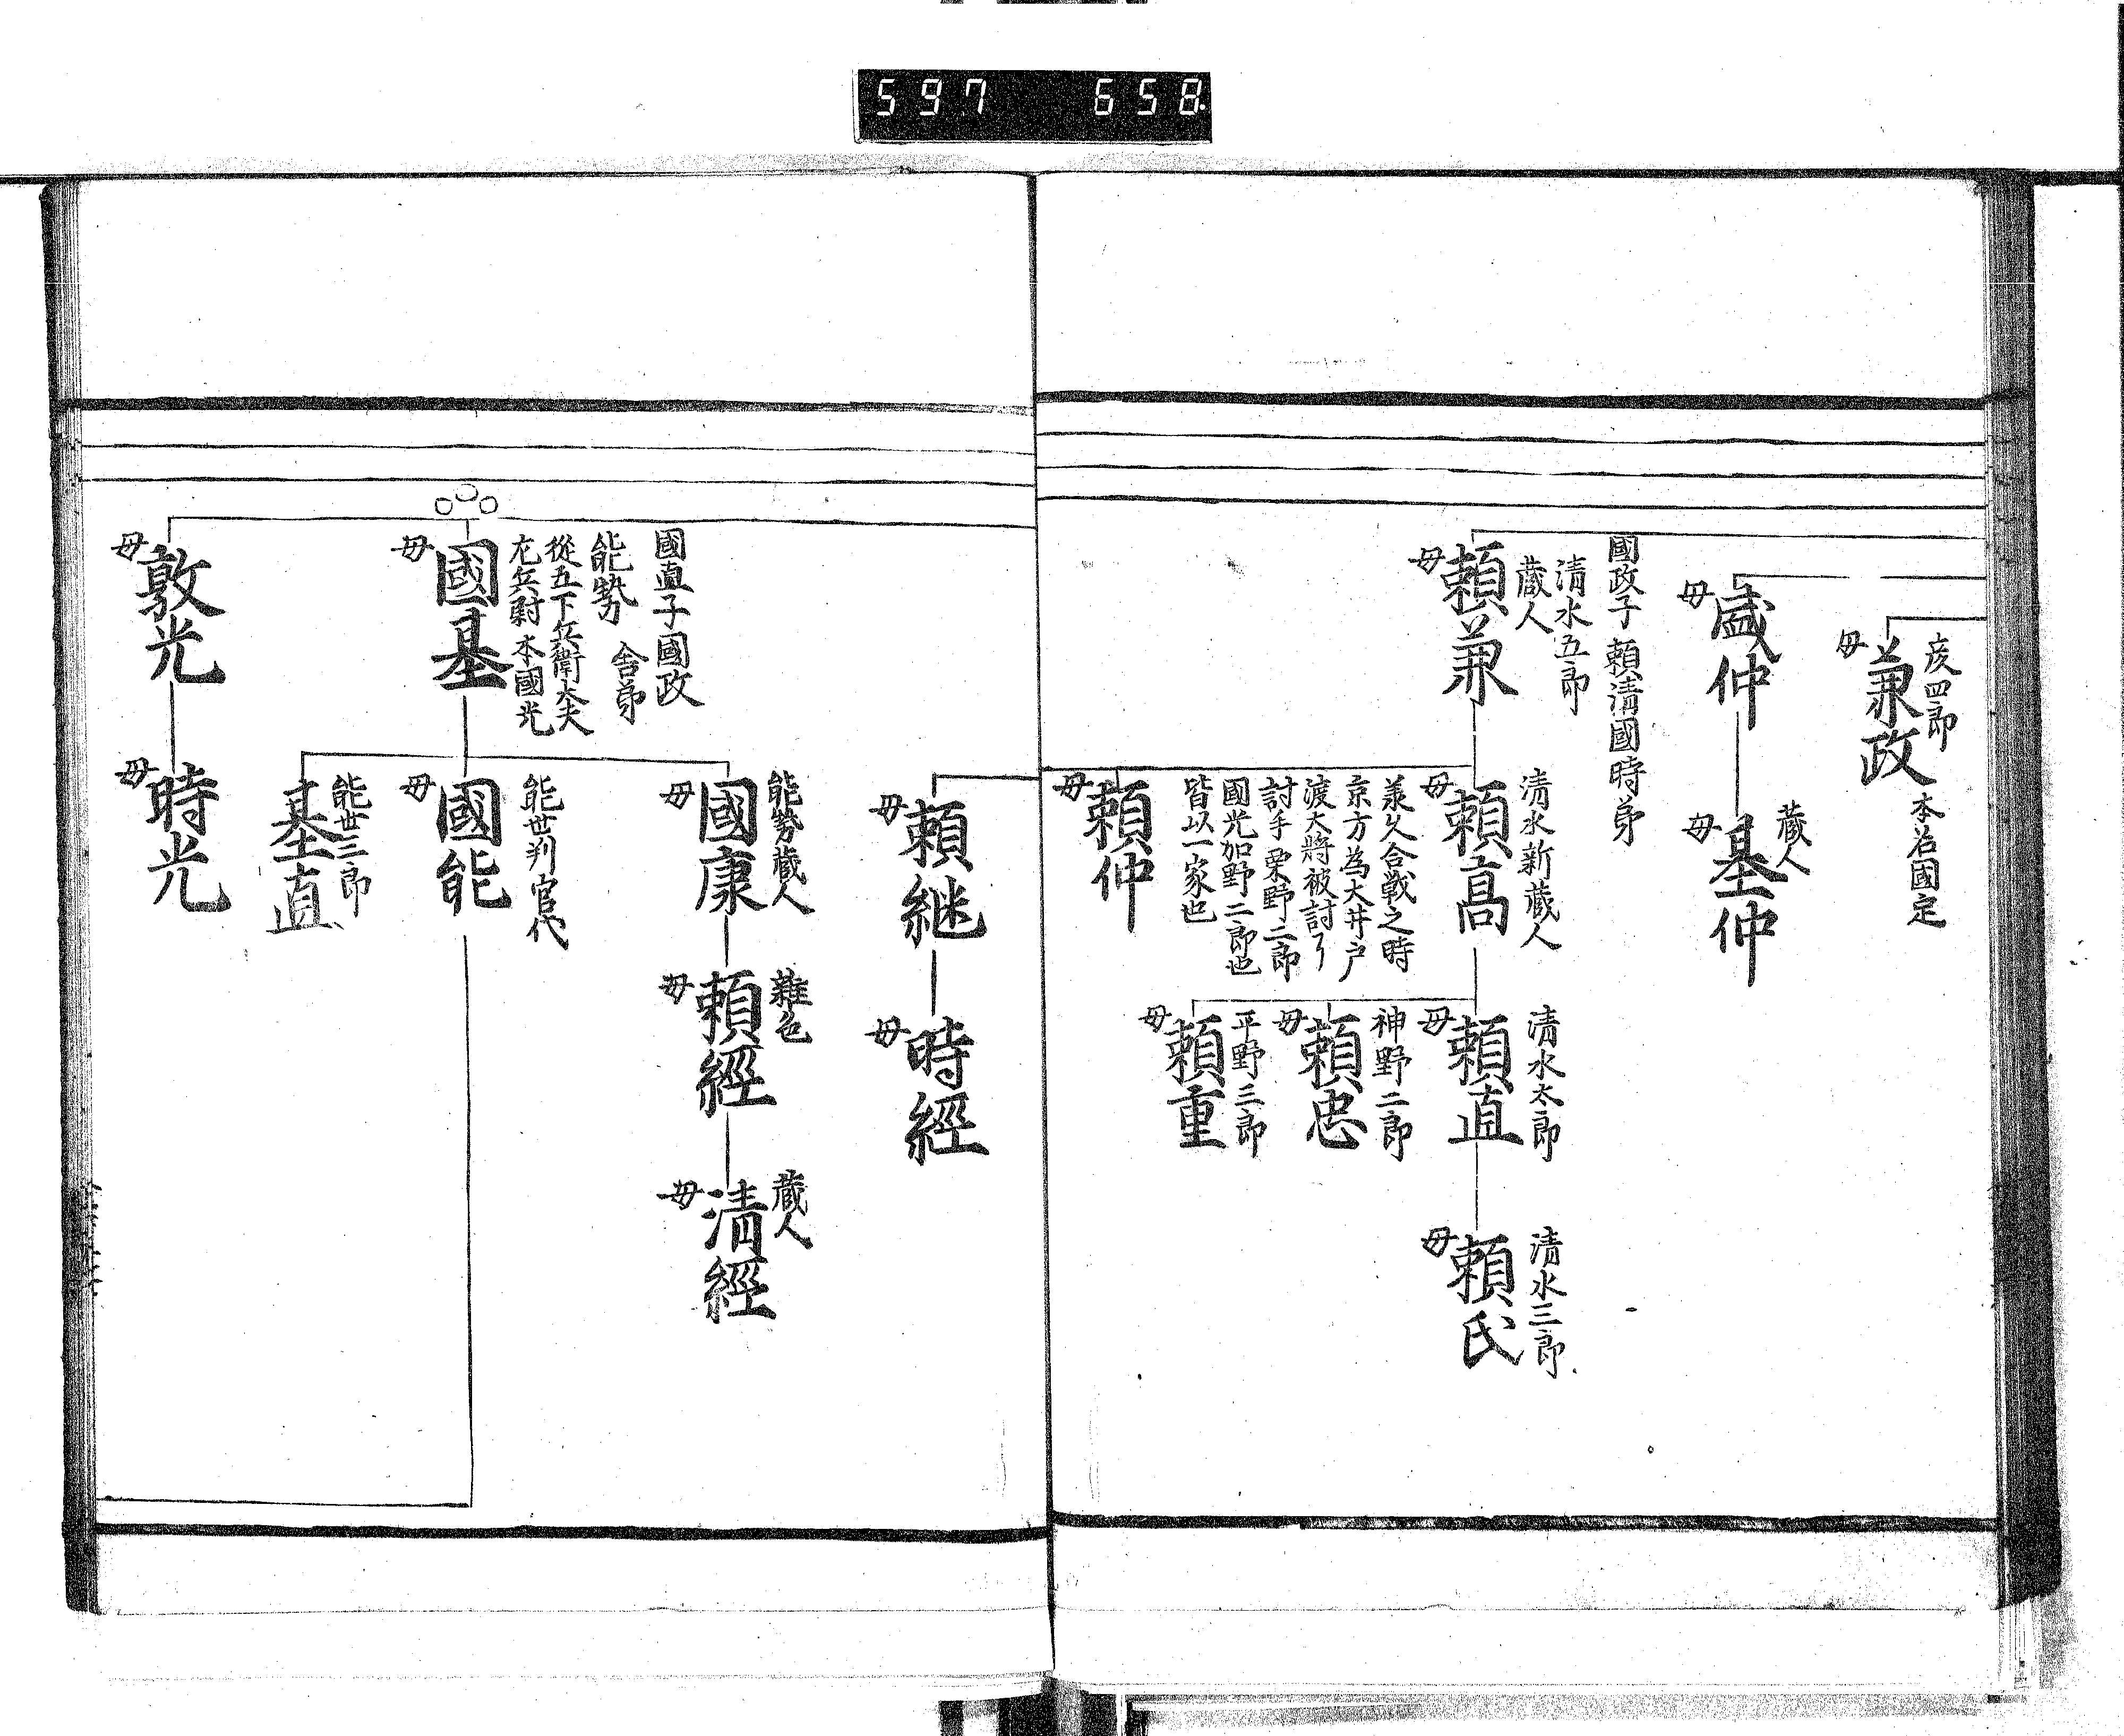 597 658.
彦四郎
母
兼政
本名國定
母
盛仲
蔵人
母
基仲
國政子 頼清國時弟
清水五郎
蔵人
母
頼兼
清水新蔵人
母
頼高
承久合戦之時
京方為大井戸
渡大将被討了
討手栗野二郎
國光加野二郎也
皆以一家也
清水太郎
母
頼直
清水三郎
母
頼氏
神野二郎
母
頼忠
平野三郎
母
頼重
母
頼仲
母
頼継
母
時經
國直子國政
舎弟
能勢
從五下兵衛大夫
左兵尉 本國光
母
國基
能勢蔵人
母
國康
雜色
母
頼經
蔵人
母
清經
能世判官代
母
國能
能世三郎
基直
母
敦光
母
時光